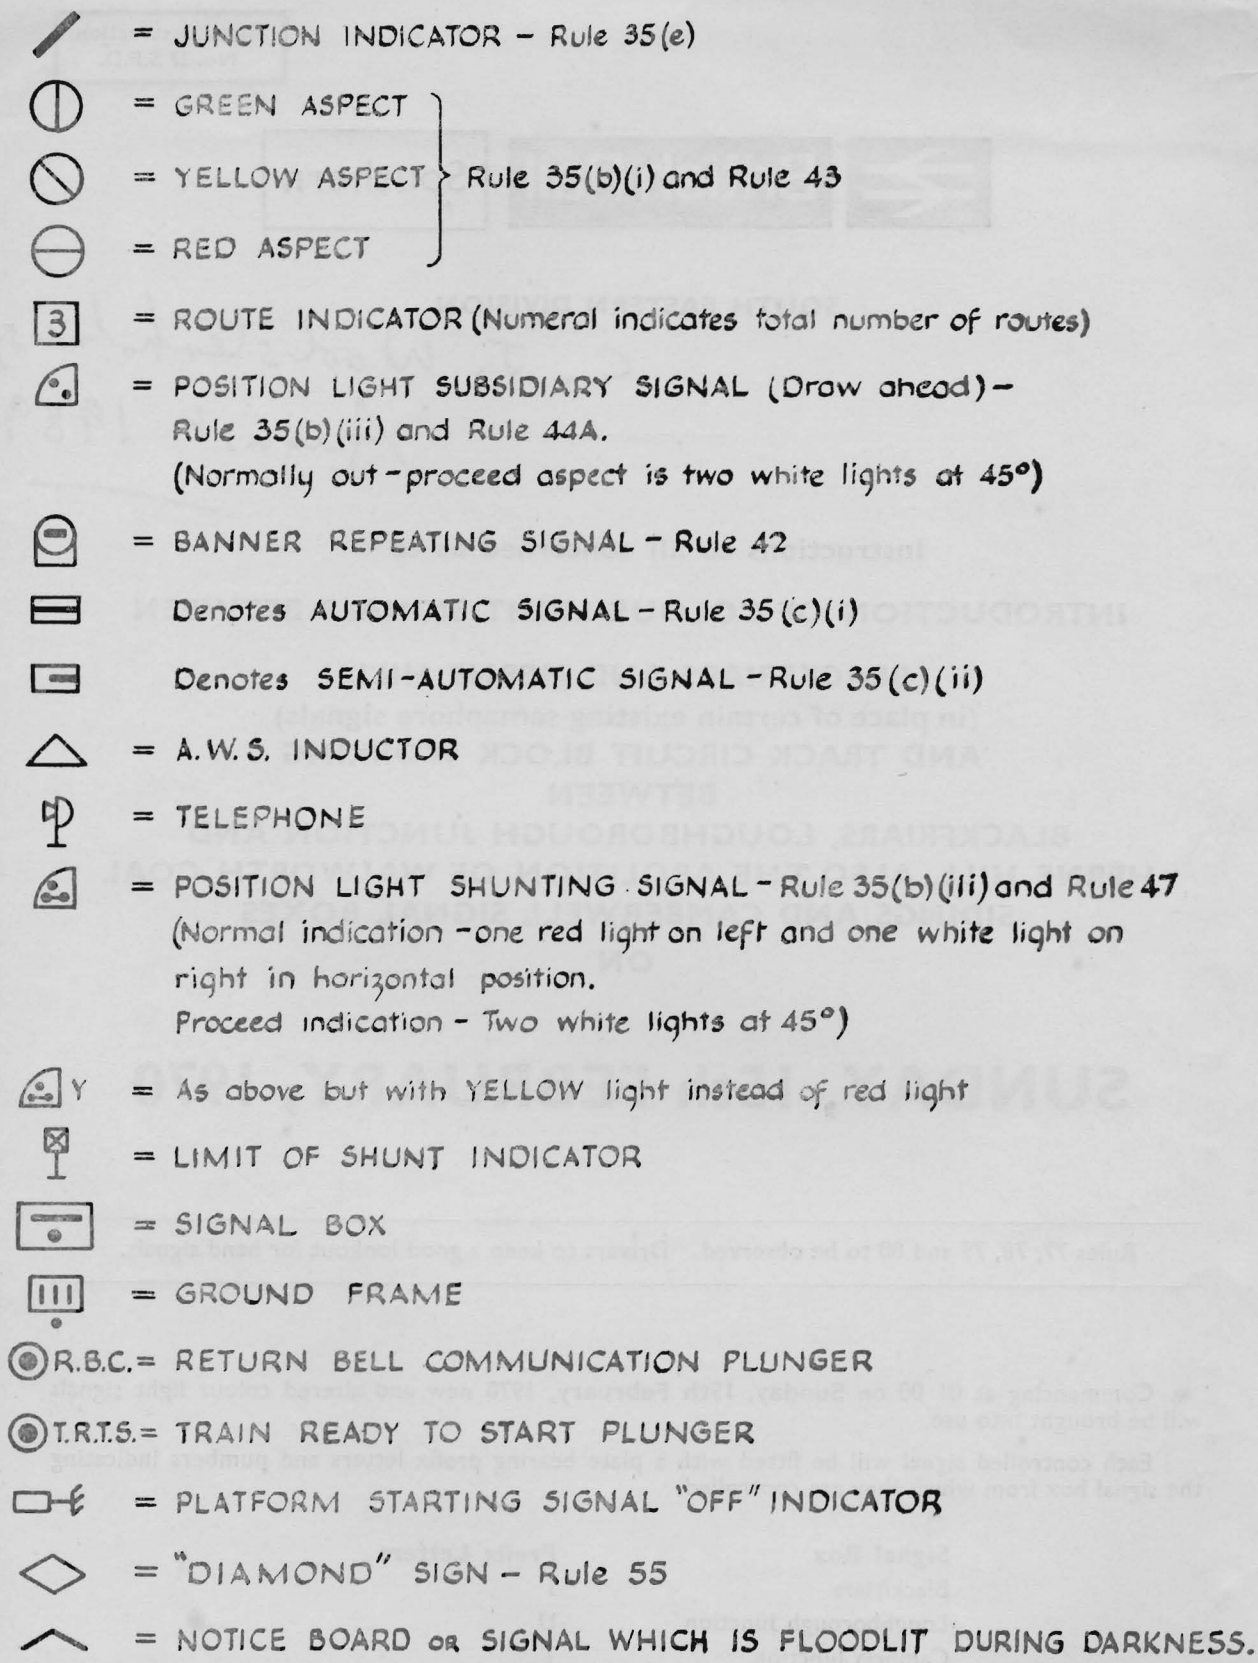 = JUNCTION INDICATOR – Rule 35(e)
= GREEN ASPECT
= YELLOW ASPECT Rule 35(b)(i) and Rule 43
= RED ASPECT
3 = ROUTE INDICATOR (Numeral indicates total number of routes)
= POSITION LIGHT SUBSIDIARY SIGNAL (Draw ahead) –
Rule 35(b)(iii) and Rule 44A.
(Normally out – proceed aspect is two white lights at 45°)
= BANNER REPEATING SIGNAL – Rule 42
Denotes AUTOMATIC SIGNAL – Rule 35(c)(i)
Denotes SEMI-AUTOMATIC SIGNAL – Rule 35(c)(ii)
= A.W.S. INDUCTOR
= TELEPHONE
= POSITION LIGHT SHUNTING SIGNAL – Rule 35(b)(iii) and Rule 47
(Normal indication – one red light on left and one white light on
right in horizontal position.
Proceed indication – Two white lights at 45°)
Y = As above but with YELLOW light instead of red light
= LIMIT OF SHUNT INDICATOR
= SIGNAL BOX
= GROUND FRAME
R.B.C. = RETURN BELL COMMUNICATION PLUNGER
T.R.T.S. = TRAIN READY TO START PLUNGER
= PLATFORM STARTING SIGNAL "OFF" INDICATOR
= "DIAMOND" SIGN – Rule 55
= NOTICE BOARD OR SIGNAL WHICH IS FLOODLIT DURING DARKNESS.